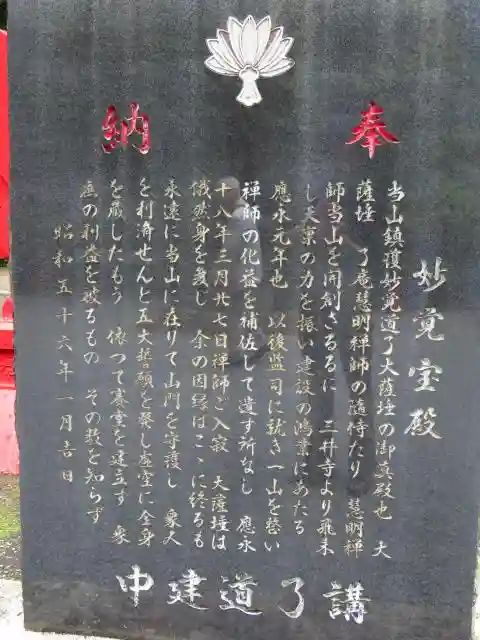 奉納
妙覚宝殿
当山鎮護妙覚道了大薩埵の御真殿也 大
薩埵 了庵慧明禅師の随侍たり 慧明禅
師当山を開創さるるに 三井寺より飛来
し天禀の力を振い建設の鴻業にあたる
應永元年也 以後監司に就き一山を誓い
禅師の化益を補佐して遺す所なし 應永
十八年三月廿七日禅師ご入寂 大薩埵は
俄然身を変し 余の因縁はここに終るも
永遠に当山に在りて山門を守護し 衆人
を利済せんと五大誓願を発し虚空に全身
を蔵したもう 依つて寶堂を建立す 衆
庶の利益を被るもの その数を知らず
昭和五十六年一月吉日
講了道建中